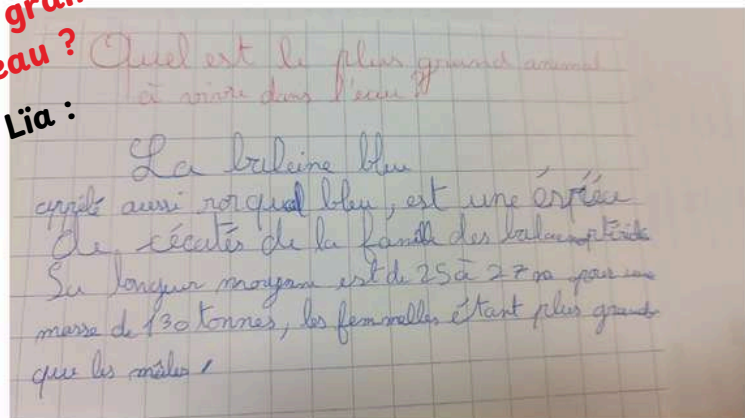 gran
eau ?
Lïa :
Quel est le plus grand animal
à vivre dans l'eau ?
La baleine bleu
appelé aussi rorqual bleu, est une éspéce
de cécatés de la famille des
Sa longueur moyenne est de 25 à 27 m pour une
masse de 130 tonnes, les femmelles étant plus grand
que les mâles,